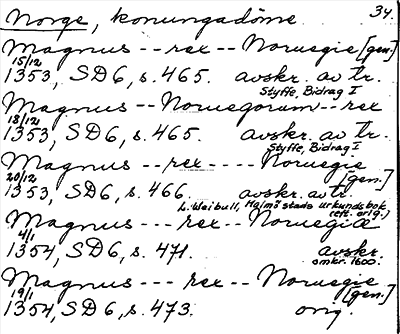 Norge, konungadöme. 34.
Magnus -- rex -- Noruegie [gen.]
15/12
1353, SD6, s. 465. avskr. av tr.
Styffe, Bidrag I
Magnus -- Noruegorum -- rex
18/12
1353, SD6, s. 465. avskr. av tr.
Styffe, Bidrag I
Magnus --- rex ---- Noruegie
[gen.]
20/12
1353, SD6, s. 466. avskr. av tr.
L. Weibull, Halmstads urkundsbok
(eft. orig.)
Magnus --- rex -- Noruegiæ
4/1
1354, SD6, s. 471. avskr.
omkr. 1600.
Magnus --- rex -- Noruegie
[gen.]
19/1
1354, SD6, s. 473. orig.